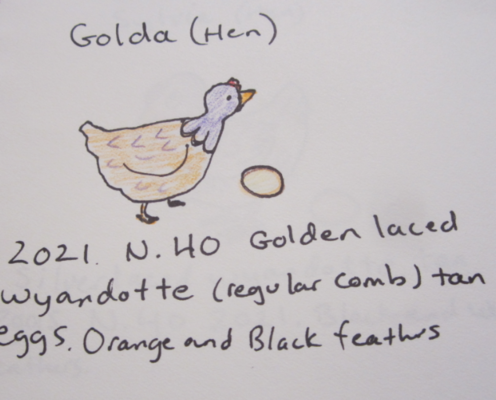 Golda (Hen)
2021. N.HO Golden laced
Wyandotte (regular comb) tan
eggs. Orange and Black feathrs